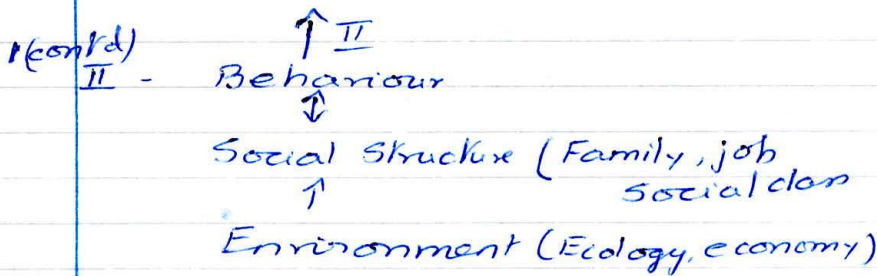 1(cont'd) ⇑ II
II - Behaviour
⇕
Social Structure (Family, job
Social class
↑
Environment (Ecology, economy)